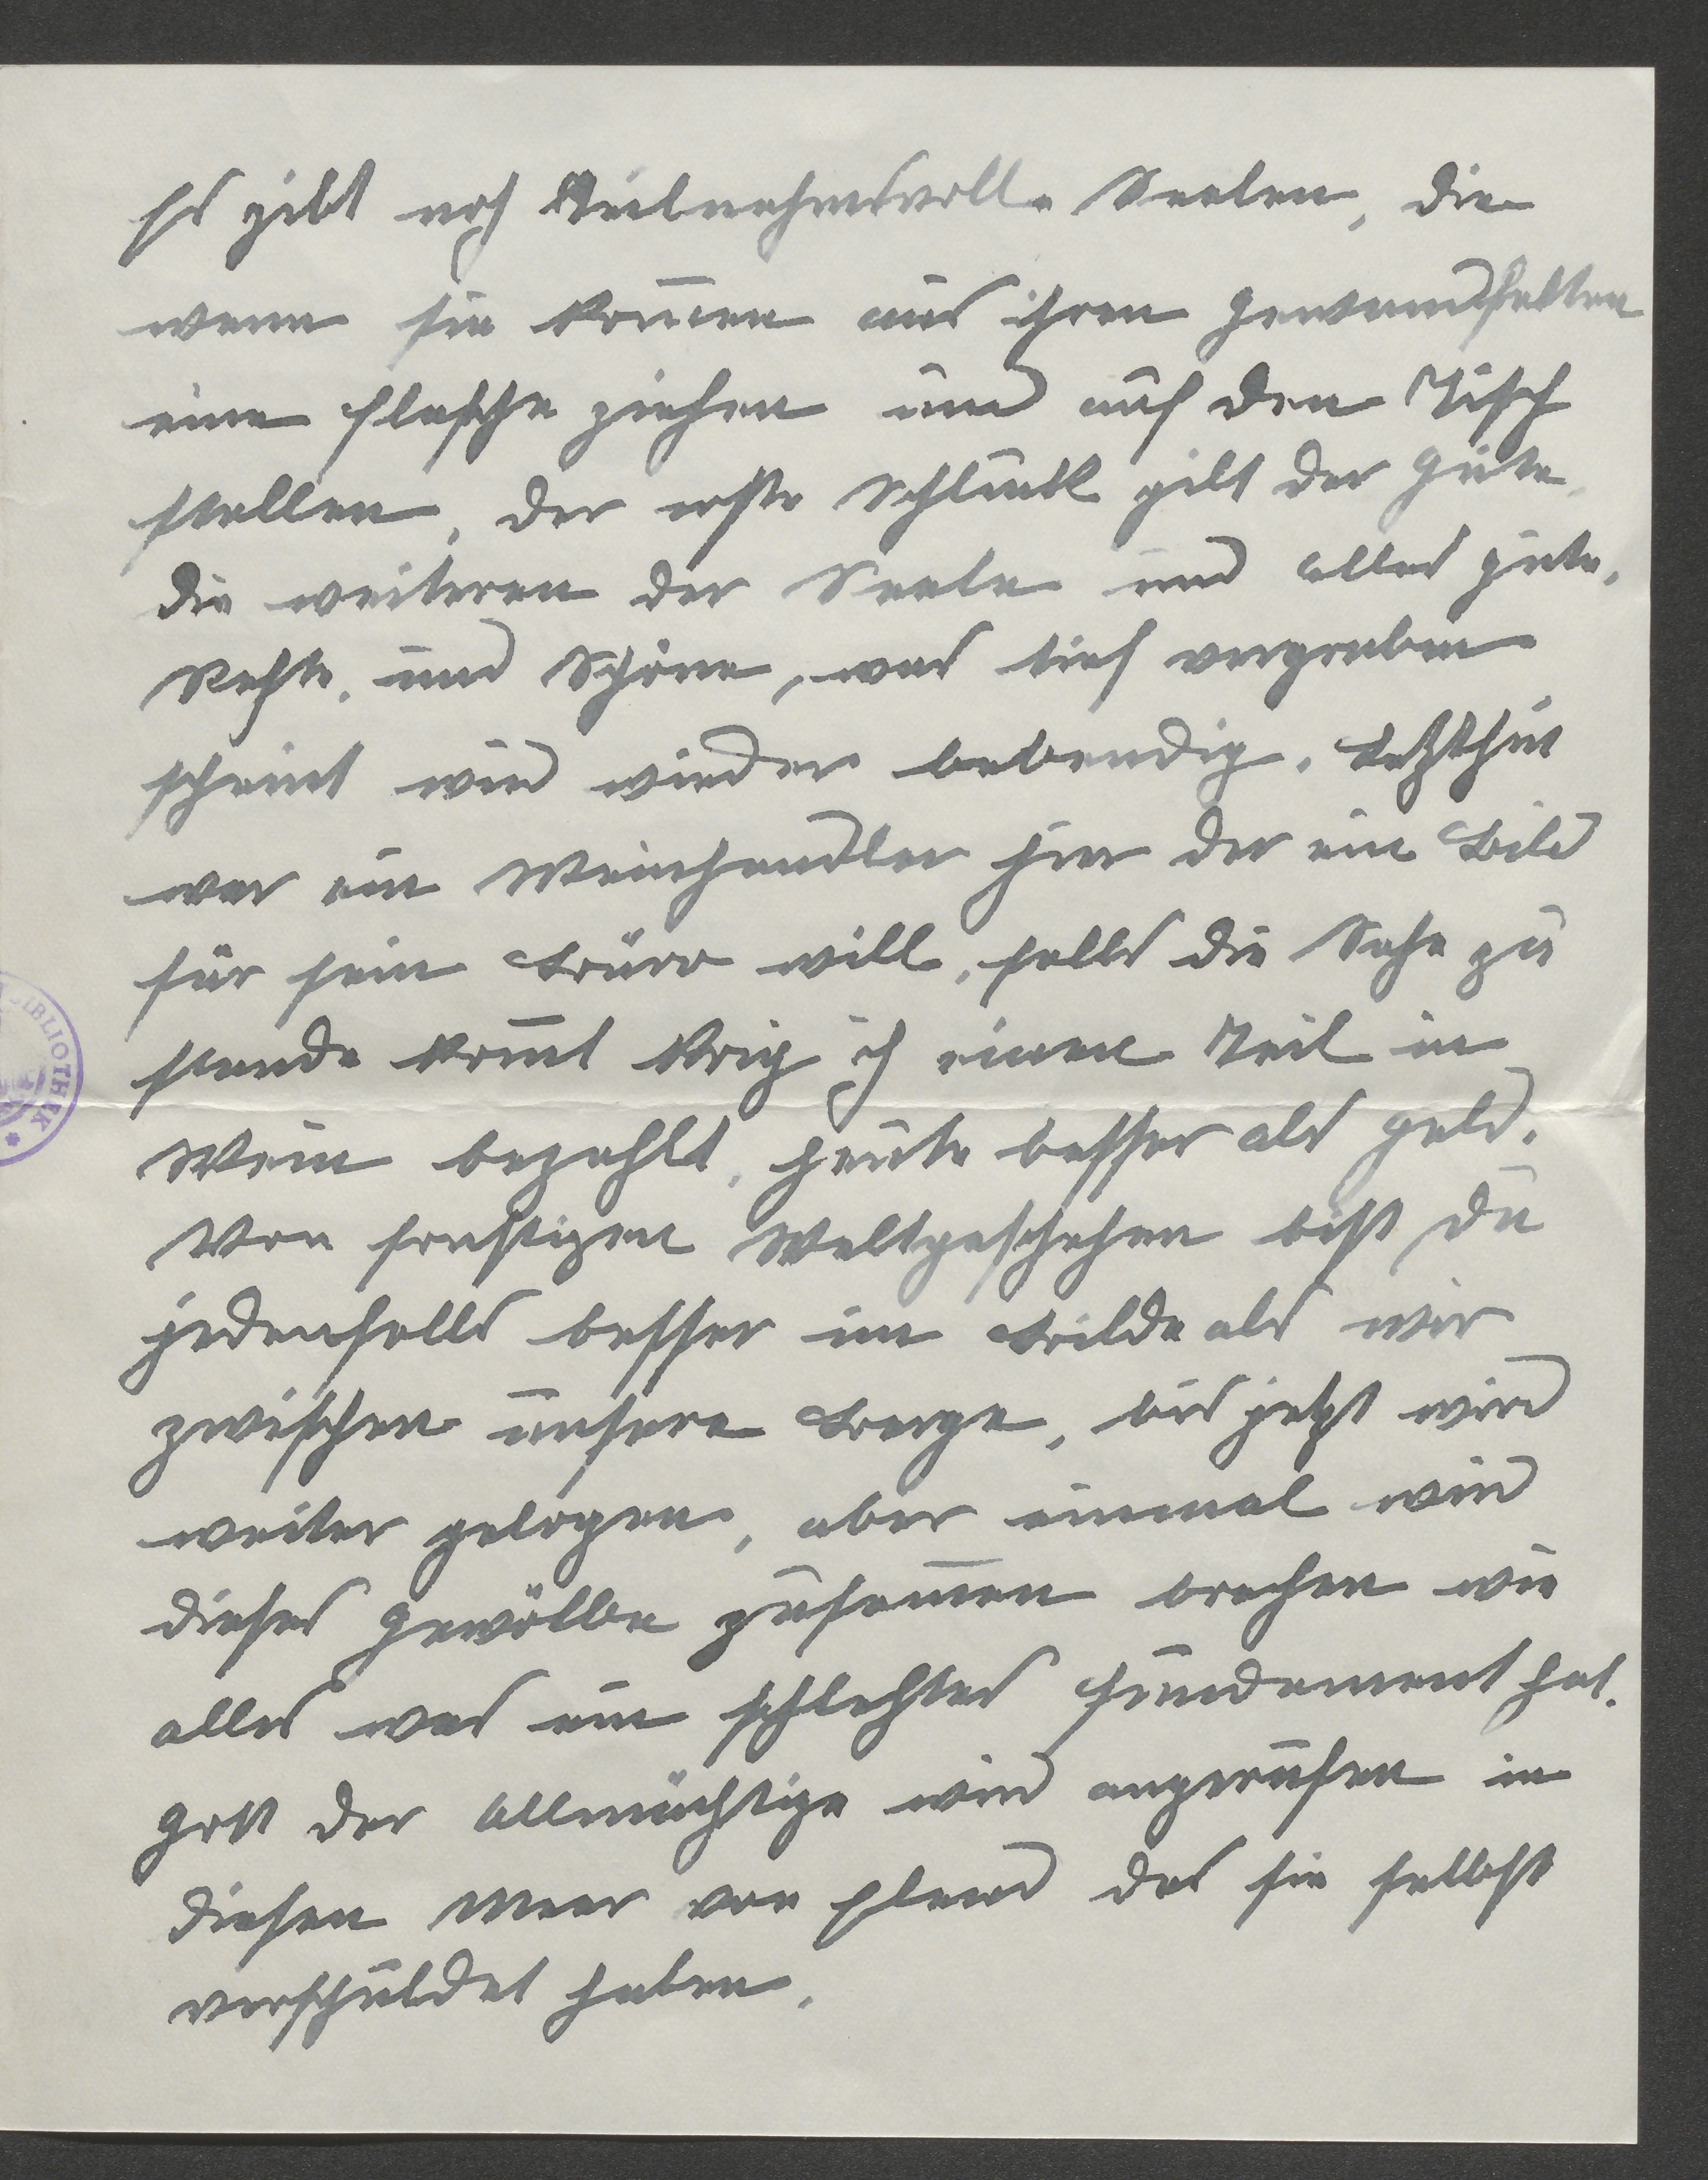 Es gibt noch Teilnahmsvolle Seelen, die
wenn sie kom̄en aus ihren Gewandfalten
eine Flasche ziehen und auf den Tisch
stellen, der erste Schluck gilt der Güte,
die weiteren der Seele und alles gute,
Rechte, und Schöne, was tief vergraben
scheint wird wieder lebendig. Letzthin
war ein Weinhandler hier der ein Bild
für sein Büro will, falls die Sache zu
stande kom̄t krig ich einen Teil in
Wein bezahlt, heute besser als Geld.
Von sonstigen Weltgeschehen bist du
jedenfalls besser im Bilde als wir
zwischen unsere Berge, bis jetzt wird
weiter gelogen, aber einmal wird
dieses Gewölbe zusam̄en brechen wie
alles was ein schlechtes Fundament hat.
Gott der Allmächtige wird angerufen in
diesen Meer von Elend das sie selbst
verschuldet haben.
BIBLIOTHEK